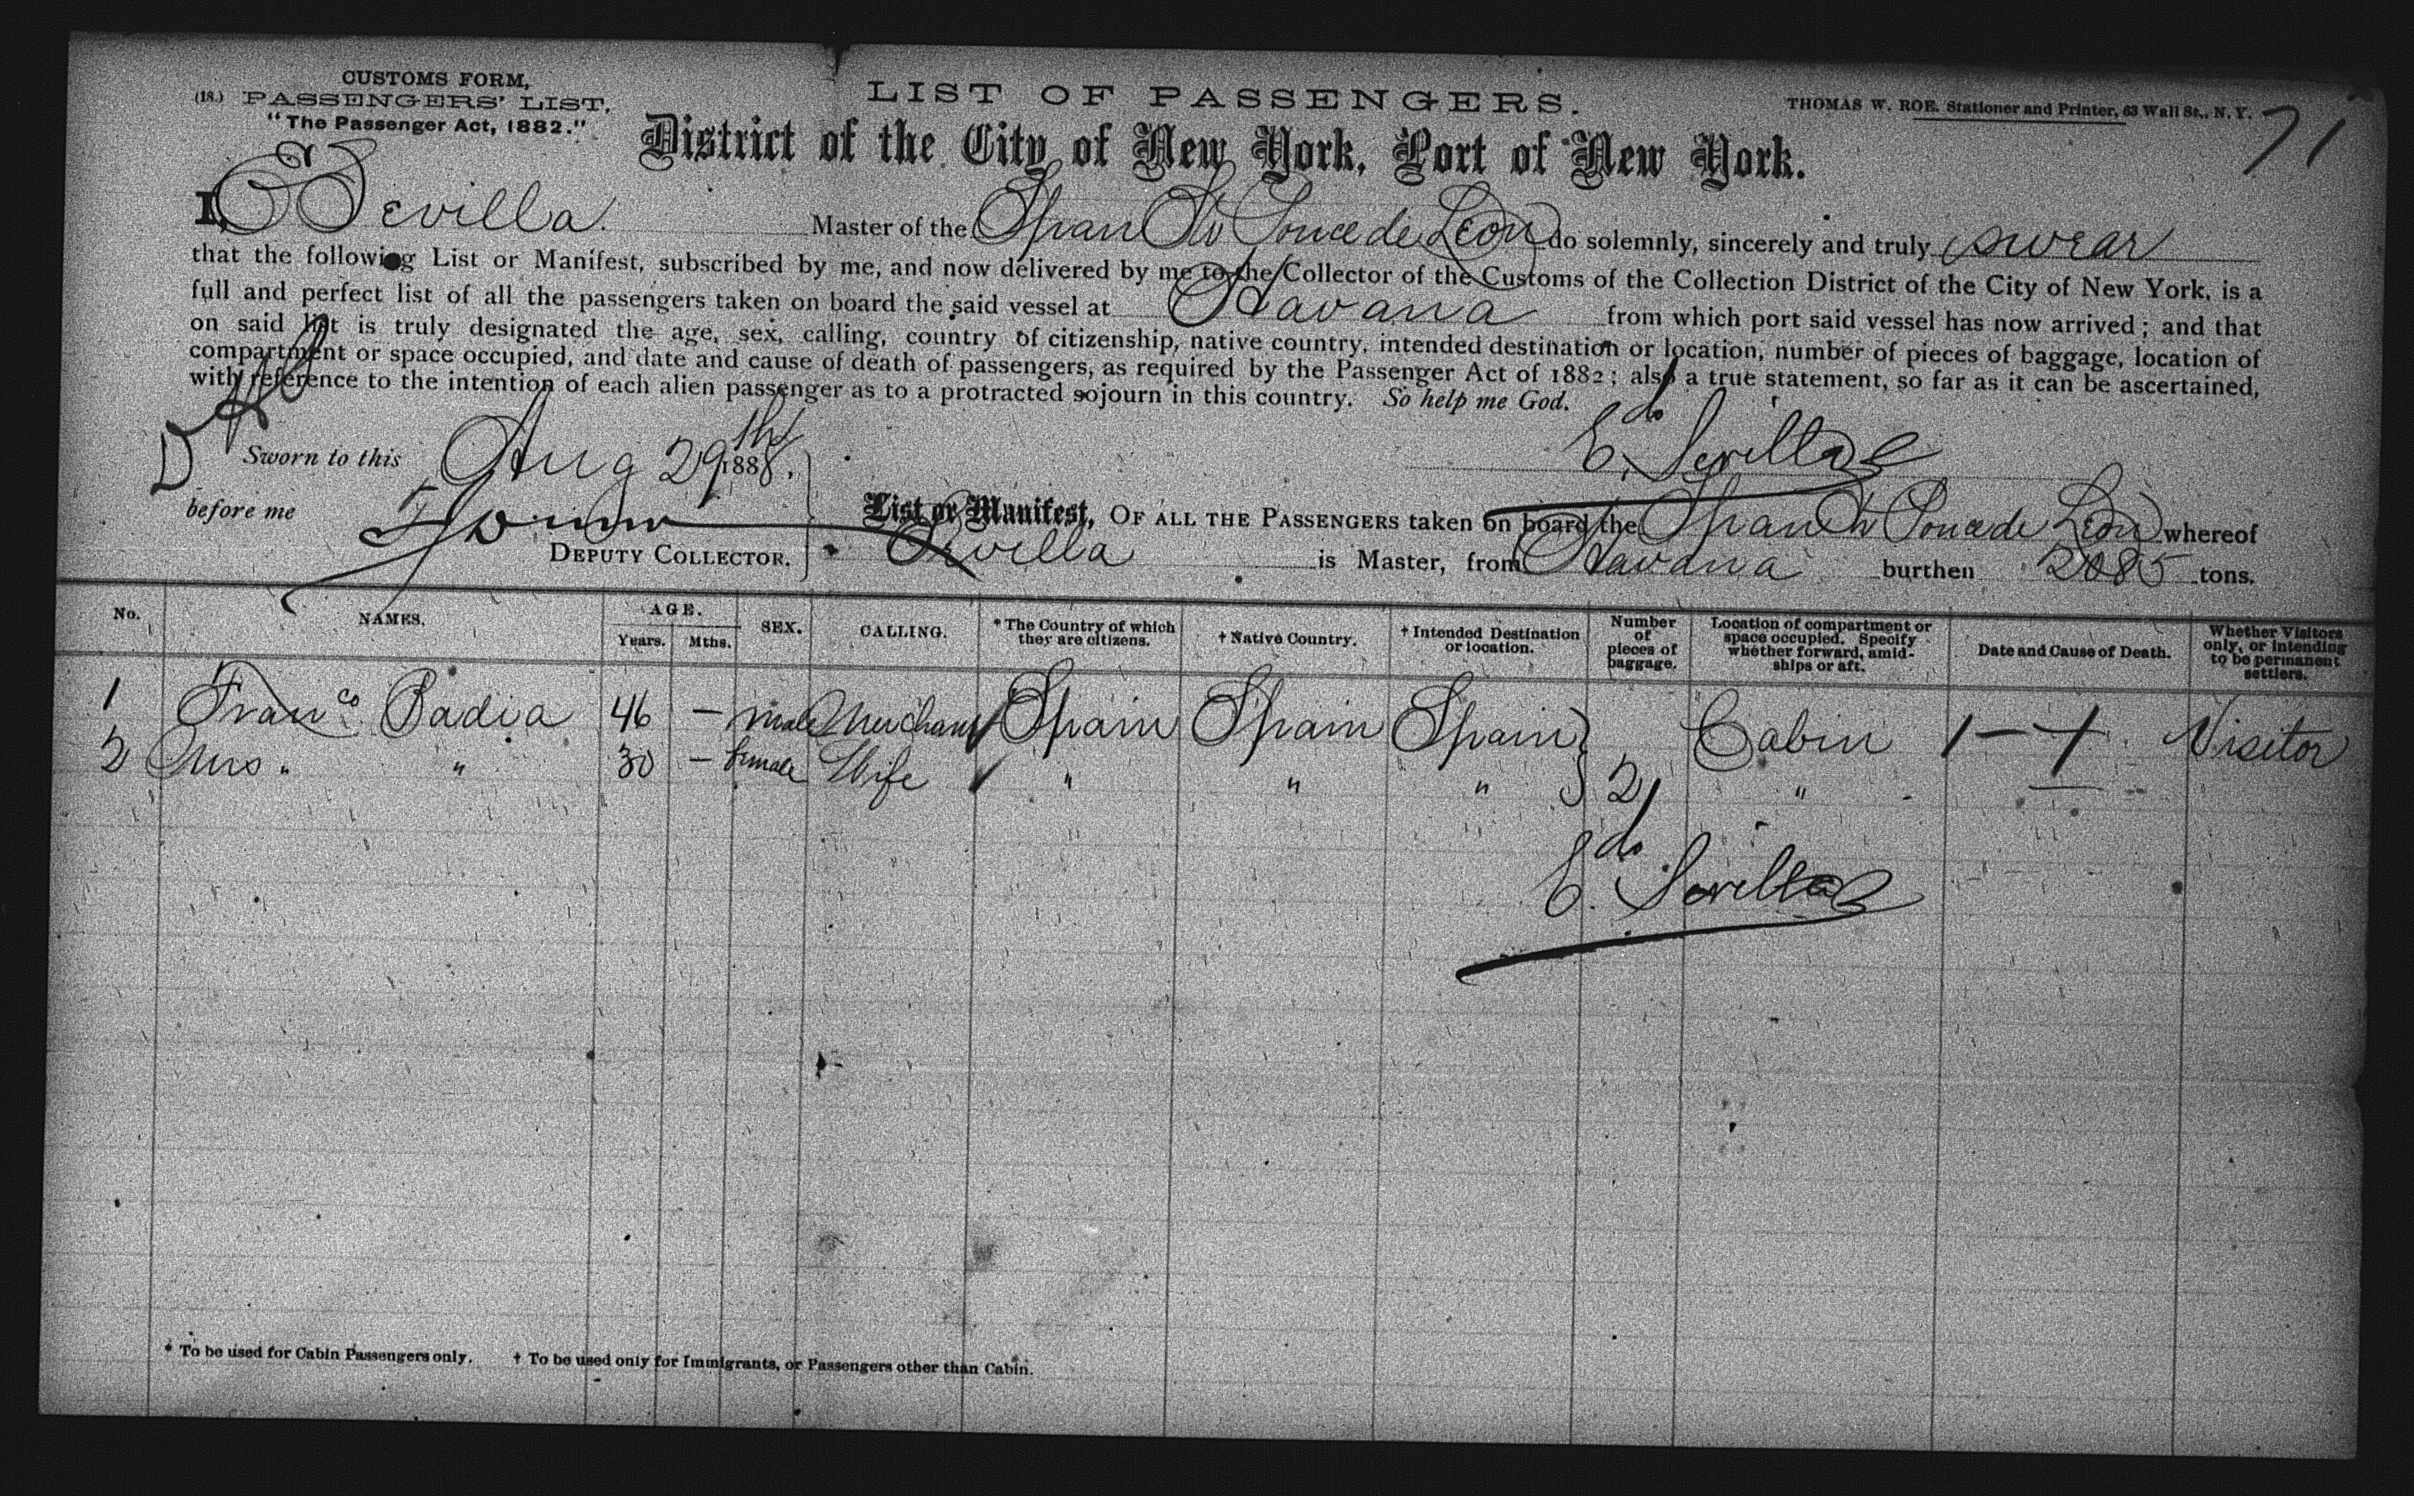 CUSTOMS FORM,
(18.) PASSENGERS' LIST,
"The Passenger Act, 1882."
LIST OF PASSENGERS.
THOMAS W. ROE, Stationer and Printer, 63 Wall St., N. Y.
71
District of the City of New York, Port of New York.
I, E Sevilla Master of the Span Str Ponce de Leon do solemnly, sincerely and truly swear
that the following List or Manifest, subscribed by me, and now delivered by me to the Collector of the Customs of the Collection District of the City of New York, is a
full and perfect list of all the passengers taken on board the said vessel at Havana from which port said vessel has now arrived; and that
on said list is truly designated the age, sex, calling, country of citizenship, native country, intended destination or location, number of pieces of baggage, location of
compartment or space occupied, and date and cause of death of passengers, as required by the Passenger Act of 1882; also a true statement, so far as it can be ascertained,
with reference to the intention of each alien passenger as to a protracted sojourn in this country. So help me God.
Sworn to this Aug 29th 1888.
E.do Sevilla
before me
DEPUTY COLLECTOR.
List or Manifest, OF ALL THE PASSENGERS taken on board the Span Str Ponce de Leon whereof
Sevilla is Master, from Havana burthen 2085 tons.
No. NAMES. AGE. Years. Mths. SEX. CALLING. * The Country of which they are citizens. † Native Country. † Intended Destination or location. Number of pieces of baggage. Location of compartment or space occupied. Specify whether forward, amidships or aft. Date and Cause of Death. Whether Visitors only, or intending to be permanent settlers.
1 Franco Badia 46 — male Merchant Spain Spain Spain Cabin 1 — + Visitor
2 Mrs. " " 30 — female Wife " " " 2 " —
E.do Sevilla
* To be used for Cabin Passengers only. † To be used only for Immigrants, or Passengers other than Cabin.